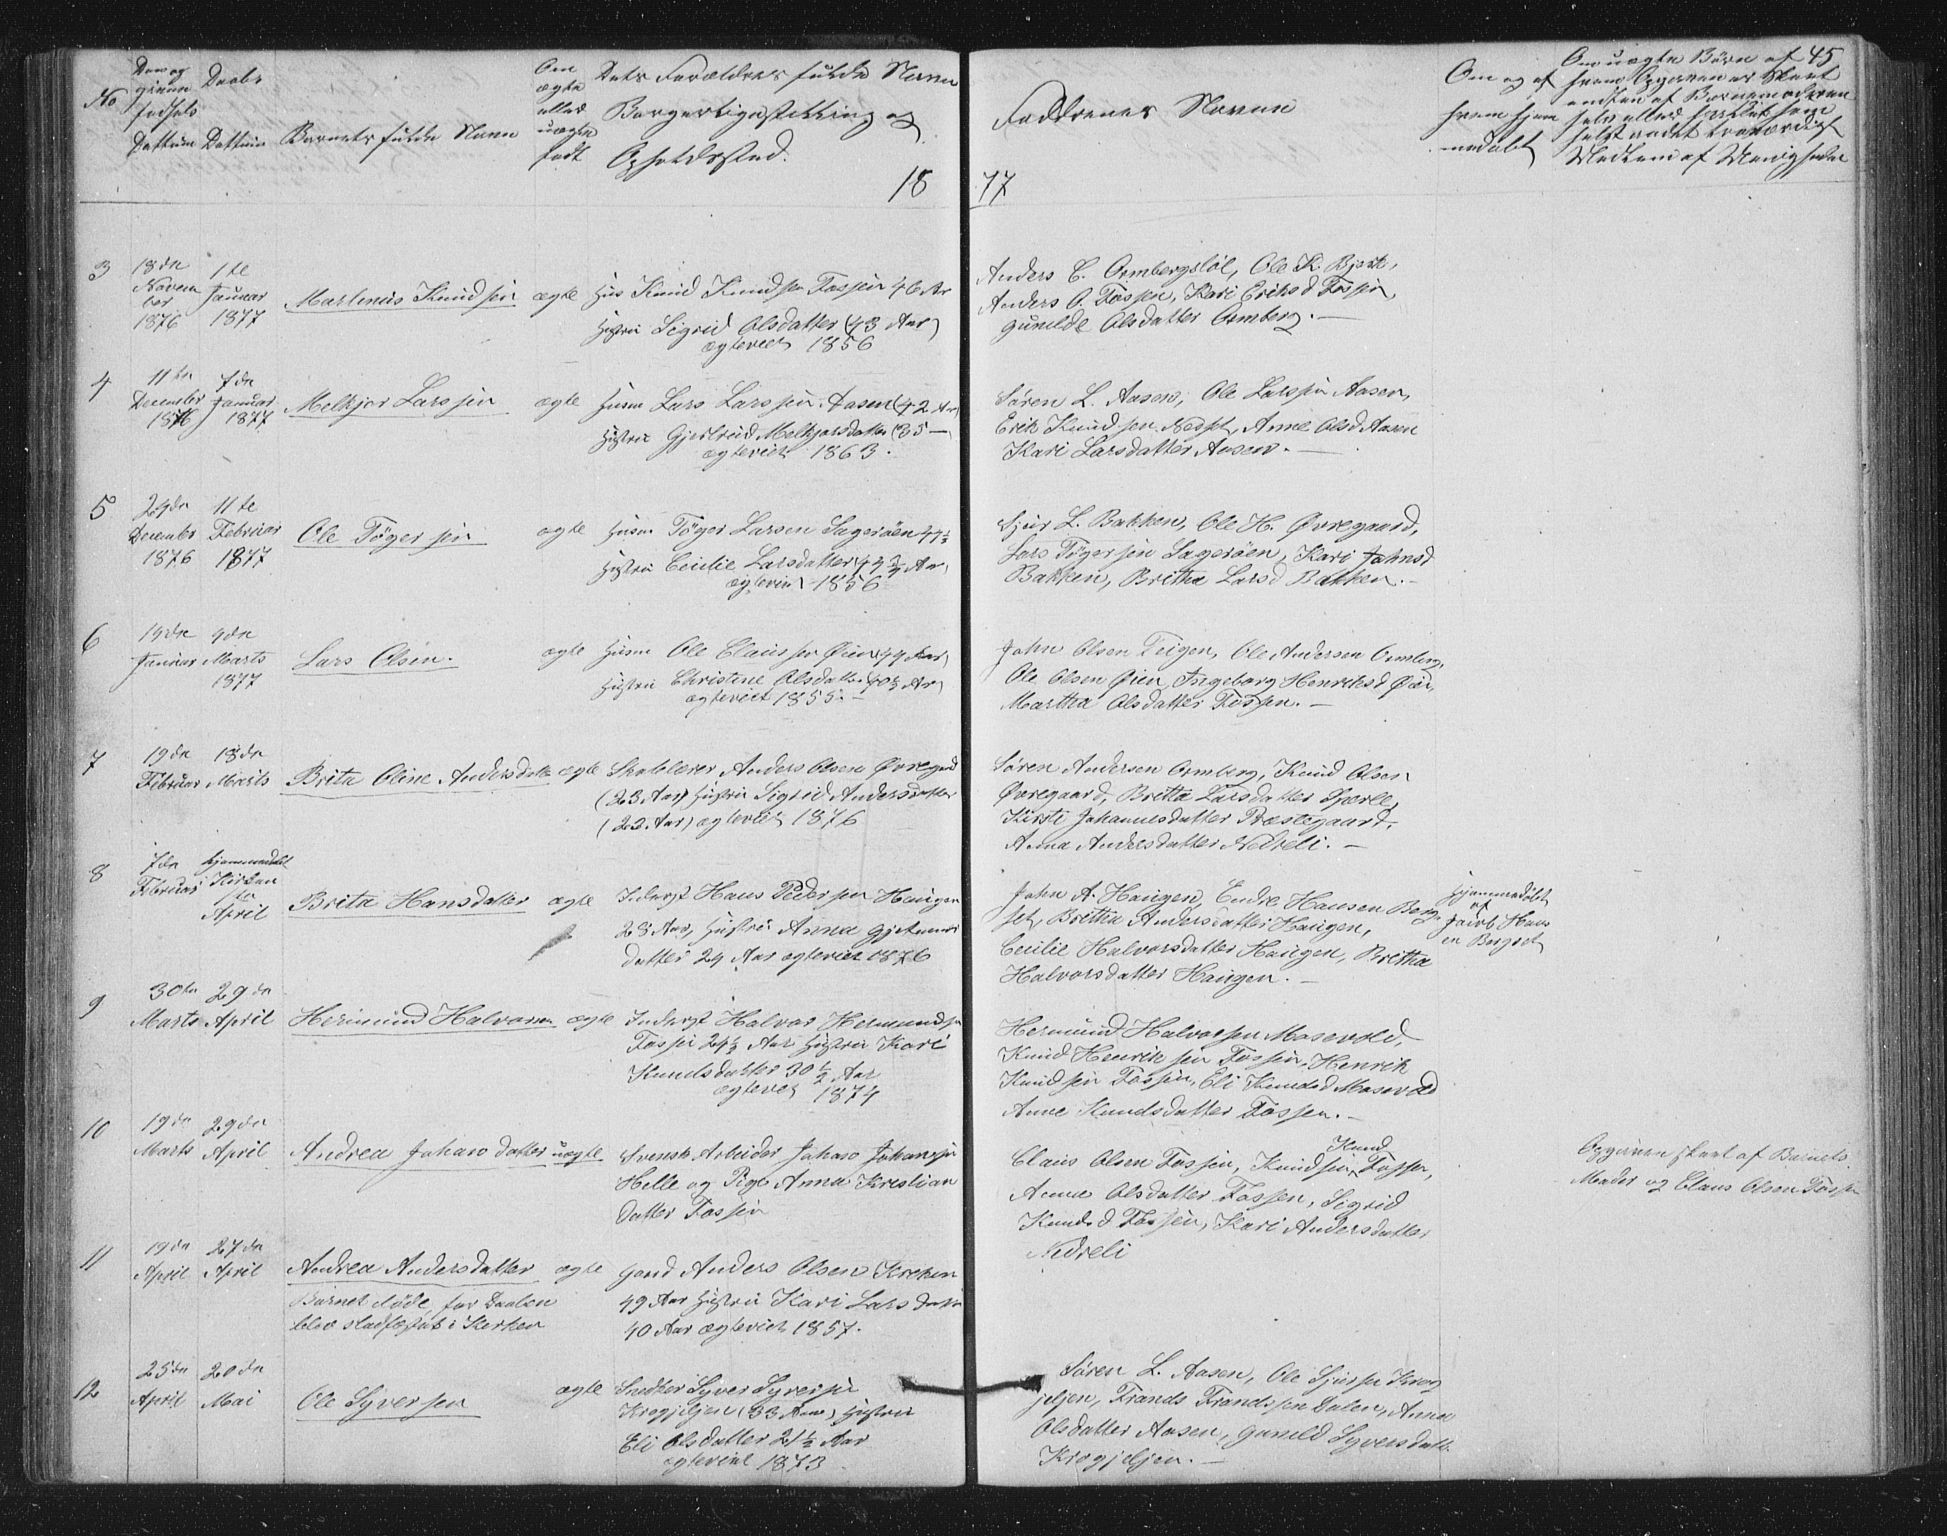 45
No
Fødsels
Dattum
Daabs
Dattum
Barnets fulde Navn
Om
ægte
eller
uægte
født
Dets Forældres fulde Navn
Borgerlige stilling og
Opholdssted.
Faddernes Navne
Om og af
hvem hjem
medøbt
Om uægte Børn af
hvem Opgaven er skeet
enten af Barnemoderen
selv eller
Medlem af Menigheden
1877
3
18de
Novem
ber
1876
1te
Januar
1877
Martenius Knudsen
ægte
Hus Knud Knudsen Fossen 46 Ar
Hustru Sigrid Olsdatter (43 Aar)
ægteviet 1856
Anders E. Ormbergsløl, Ole K. Bjørk,
Anders O. Fossen, Kari Eriksd Fossen,
Gunilde Olsdatter Ormberg. —
4
11te
December
1876
7de
Januar
1877
Melkjor Larssen
ægte
Husm Lars Larssen Aasen (42 Ar)
Hustru Gjertrud Melkjorsdatter (35 —
ægteviet 1863.
Søren L. Aasen, Ole Larssen Aasen,
Erik Knudsen Nedset, Anne Olsd Aasen
Kari Larsdatter Aasen. —
5
24de
December
1876
11te
Februar
1877
Ole Tøgersen
ægte
Husm Tøger Larsen Sagerøen 44½
Hustru Cecilie Larsdatter (42¾ Ar)
ægteviet 1856
Sjur L. Bakken, Ole H. Øvregaard,
Lars Tøgersen Sagerøen, Kari Johnsd
Bakken, Britha Larsd Bakken. —
6
15de
Januar
4de
Marts
1877
Lars Olsen.
ægte
Husm Ole Claussen Øien (44 Aar)
Hustru Christine Olsdatter 40½ Ar)
ægteviet 1855. —
John Olsen Teigen, Ole Andersen Ormberg,
Ole Olsen Øien, Ingeborg Henriksd Øien,
Martha Olsdatter Fossen. —
7
19de
Februar
18de
Marts
Brita Oline Andersdatt
ægte
Skolelærer Anders Olsen Øvregard
(23 Aar) Hustru Sigrid Andersdatter
(22 Aar) ægteviet 1876
Søren Andersen Ormberg, Knud Olsen
Øvregaard, Britta Larsdatter Sperle,
Kirsti Johannesdatter Præstegaard,
Anna Andersdatter Nedreli. —
8
7de
Februar
hjemmedøbt
Kirken
1te
April
Brita Hansdatter
ægte
Inderst Hans Pedersen Haugen
28 Aar, Hustru Anna
datter 24 Aar ægteviet 1876
John A. Haugen, Endre Hansen Berg
set, Britha Andersdatter Haugen,
Cecilie Halvorsdatter Haugen, Britha
Halvorsdatter Haugen. —
Hjemmedøbt
af
Jacob Hans
en Bergset
9
30te
Marts
29de
April
Hermund Halvorsen
ægte
Inderst Halvor Hermundsen
Fossen 24½ Aar Hustru Kari
Knudsdatter 30½ Aar
ægteviet 1874
Hermund Halvorsen Mosevold,
Knud Henriksen Fossen, Henrik
Knudsen Fossen, Eli Knudsd Mosevold
Anne Knudsdatter Fossen. —
10
19de
Marts
29de
April
Andrea Johansdatter
uægte
Svensk Arbeider Johan Johansen
Helle og Pige Anna Kristian
datter Fossen
Knud
Claus Olsen Fossen, Knudsen Fossen,
Anna Olsdatter Fossen, Sigrid
Knudsd Fossen, Kari Andersdatter
Nedreli
Opgaven skeet af Barnets
Moder og Claus Olsen Fossen
11
19de
April
27de
April
Andrea Andersdatter
ægte
Barnet døde, før Daaben
blev stadfæstet i Kirken
Gard Anders Olsen Kreken
49 Aar Hustru Kari Larsdatter
40 Aar ægteviet 1857.
12
25de
April
20de
Mai
Ole Syversen
ægte
Snedker Syver Syversen
Krogjeljen (33 Aar) Hustru
Eli Olsdatter 21½ Aar
ægteviet 1873
Søren L. Aasen, Ole Sjursen Krog
jeljen, Frands Frandssen Dalen, Anna
Olsdatter Aasen, Gunild Syversdatt
Krogjeljen. —